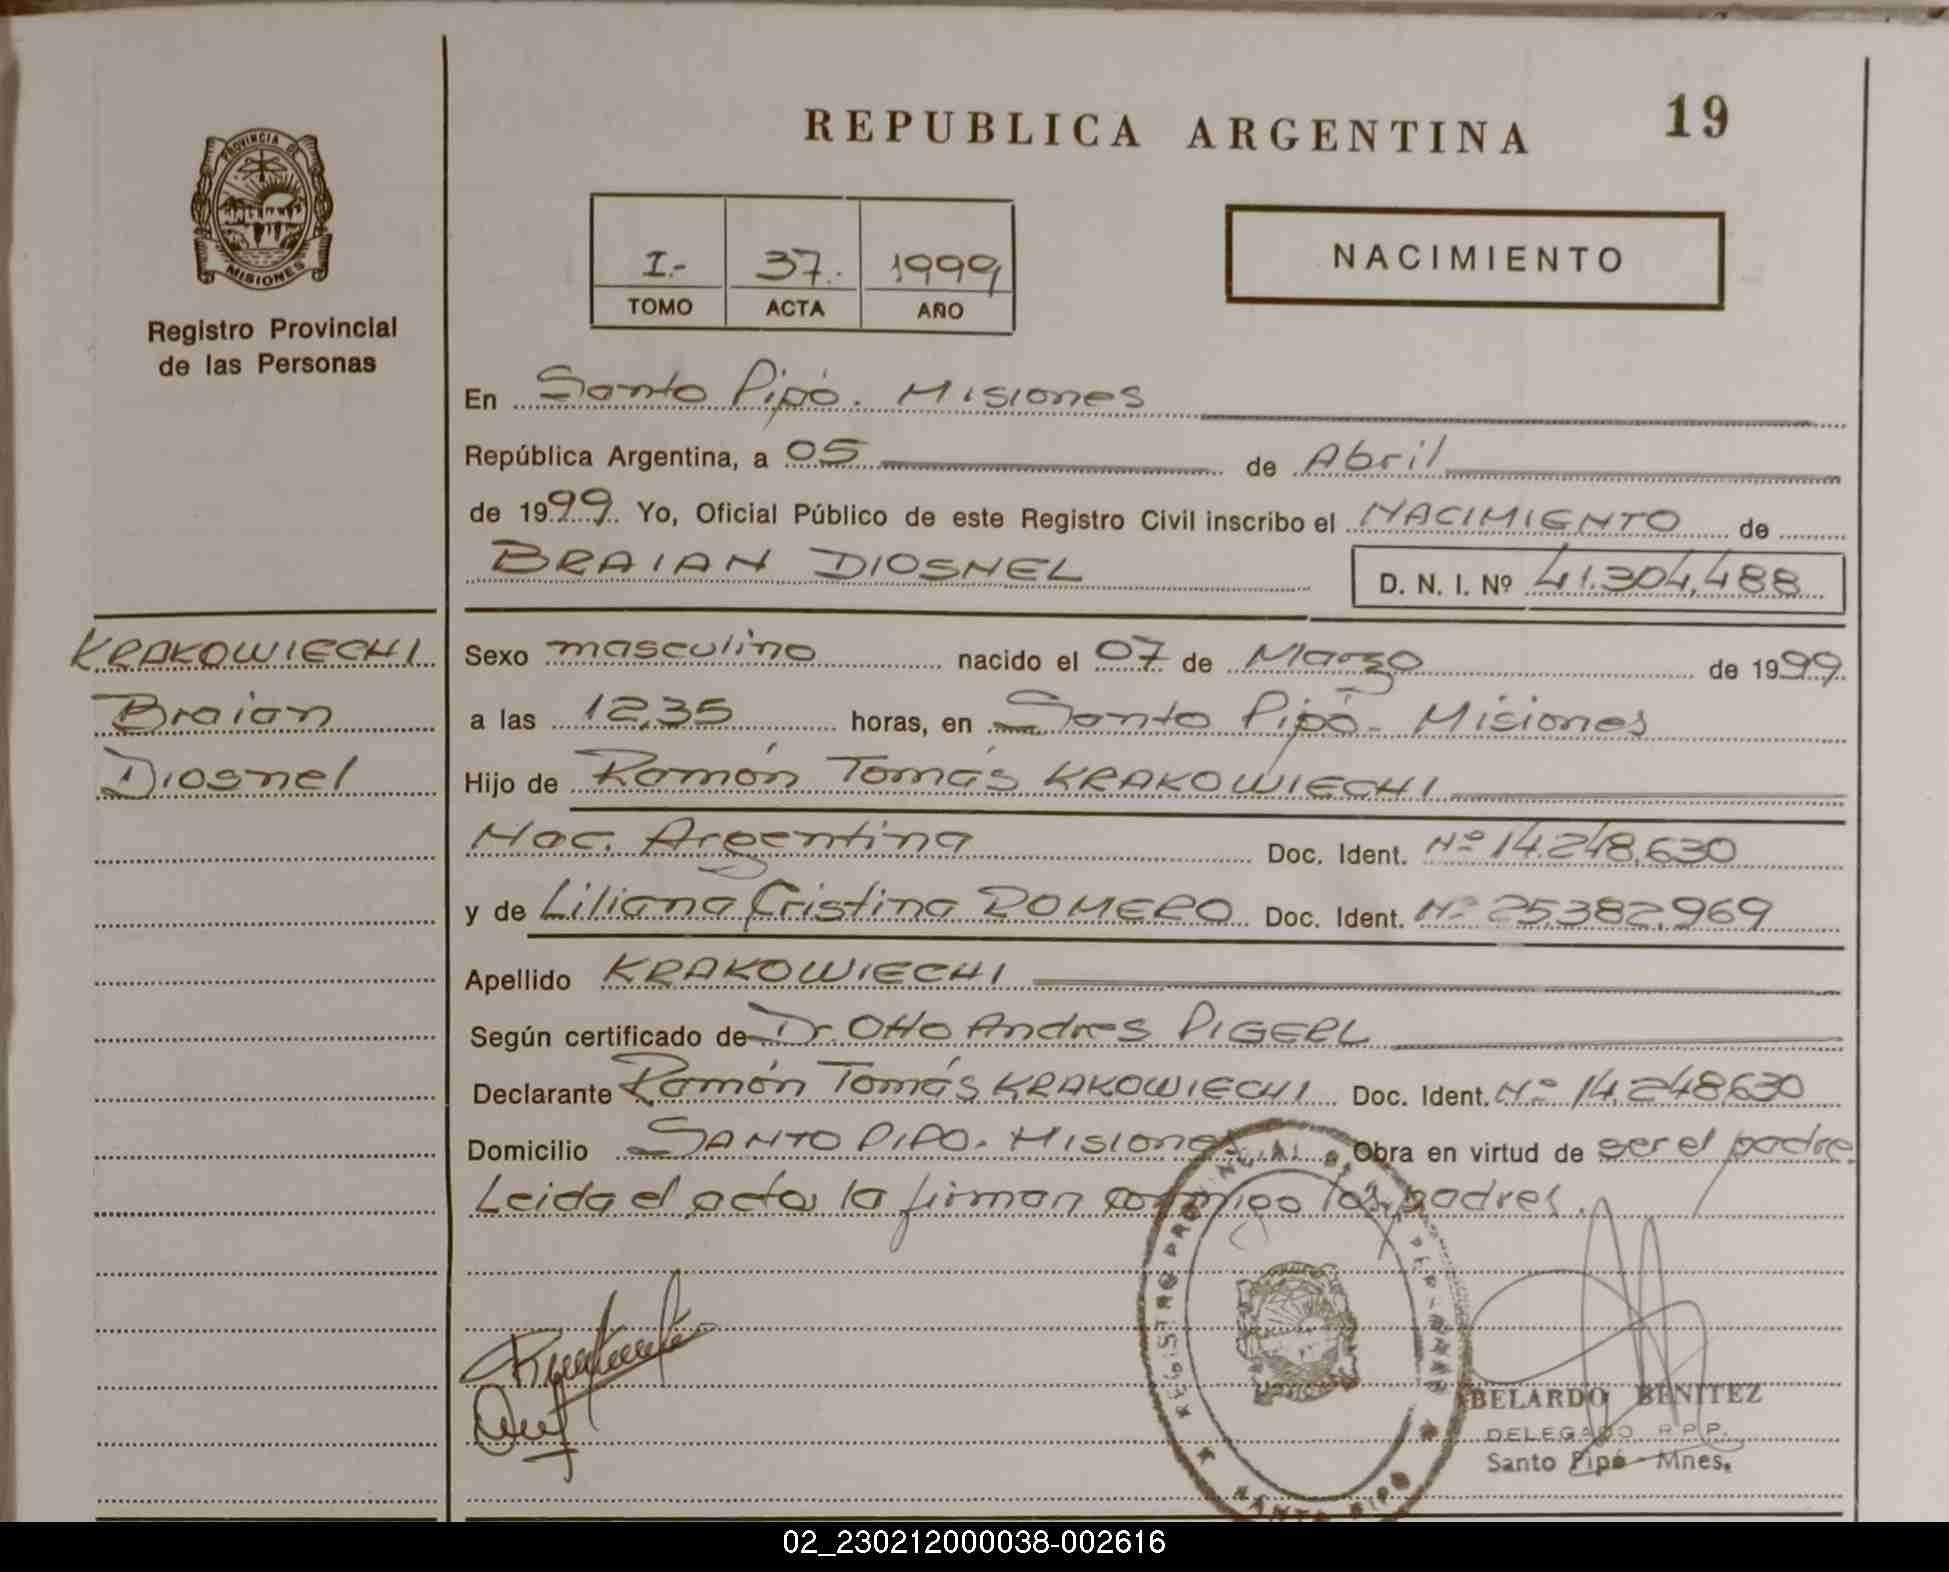 REPUBLICA ARGENTINA
19
PROVINCIA DE
MISIONES
Registro Provincial
de las Personas
I.-
37.-
1999
TOMO
ACTA
AÑO
NACIMIENTO
En Santo Pipó. Misiones
República Argentina, a 05 de Abril
de 1999. Yo, Oficial Público de este Registro Civil inscribo el NACIMIENTO de
BRAIAN DIOSNEL
D. N. I. Nº 41.304.488
KRAKOWIECHI
Braian
Diosnel
Sexo masculino nacido el 07 de Marzo de 1999.
a las 12,35 horas, en Santo Pipó- Misiones
Hijo de Ramón Tomás KRAKOWIECHI
Nac. Argentina Doc. Ident. Nº 14.248.630
y de Liliana Cristina ROMERO Doc. Ident. Nº 25.382.969
Apellido KRAKOWIECHI
Según certificado de Dr. Otto Andres PIGERL
Declarante Ramón Tomás KRAKOWIECHI Doc. Ident. Nº 14.248.630
Domicilio SANTO PIPO. Misiones Obra en virtud de ser el padre.
Leida el acta, la firman conmigo los padres.
REGISTRO PROVINCIAL DE LAS PERSONAS
SANTO PIPO
ABELARDO BENITEZ
DELEGADO R.P.P.
Santo Pipó - Mnes.
02_230212000038-002616